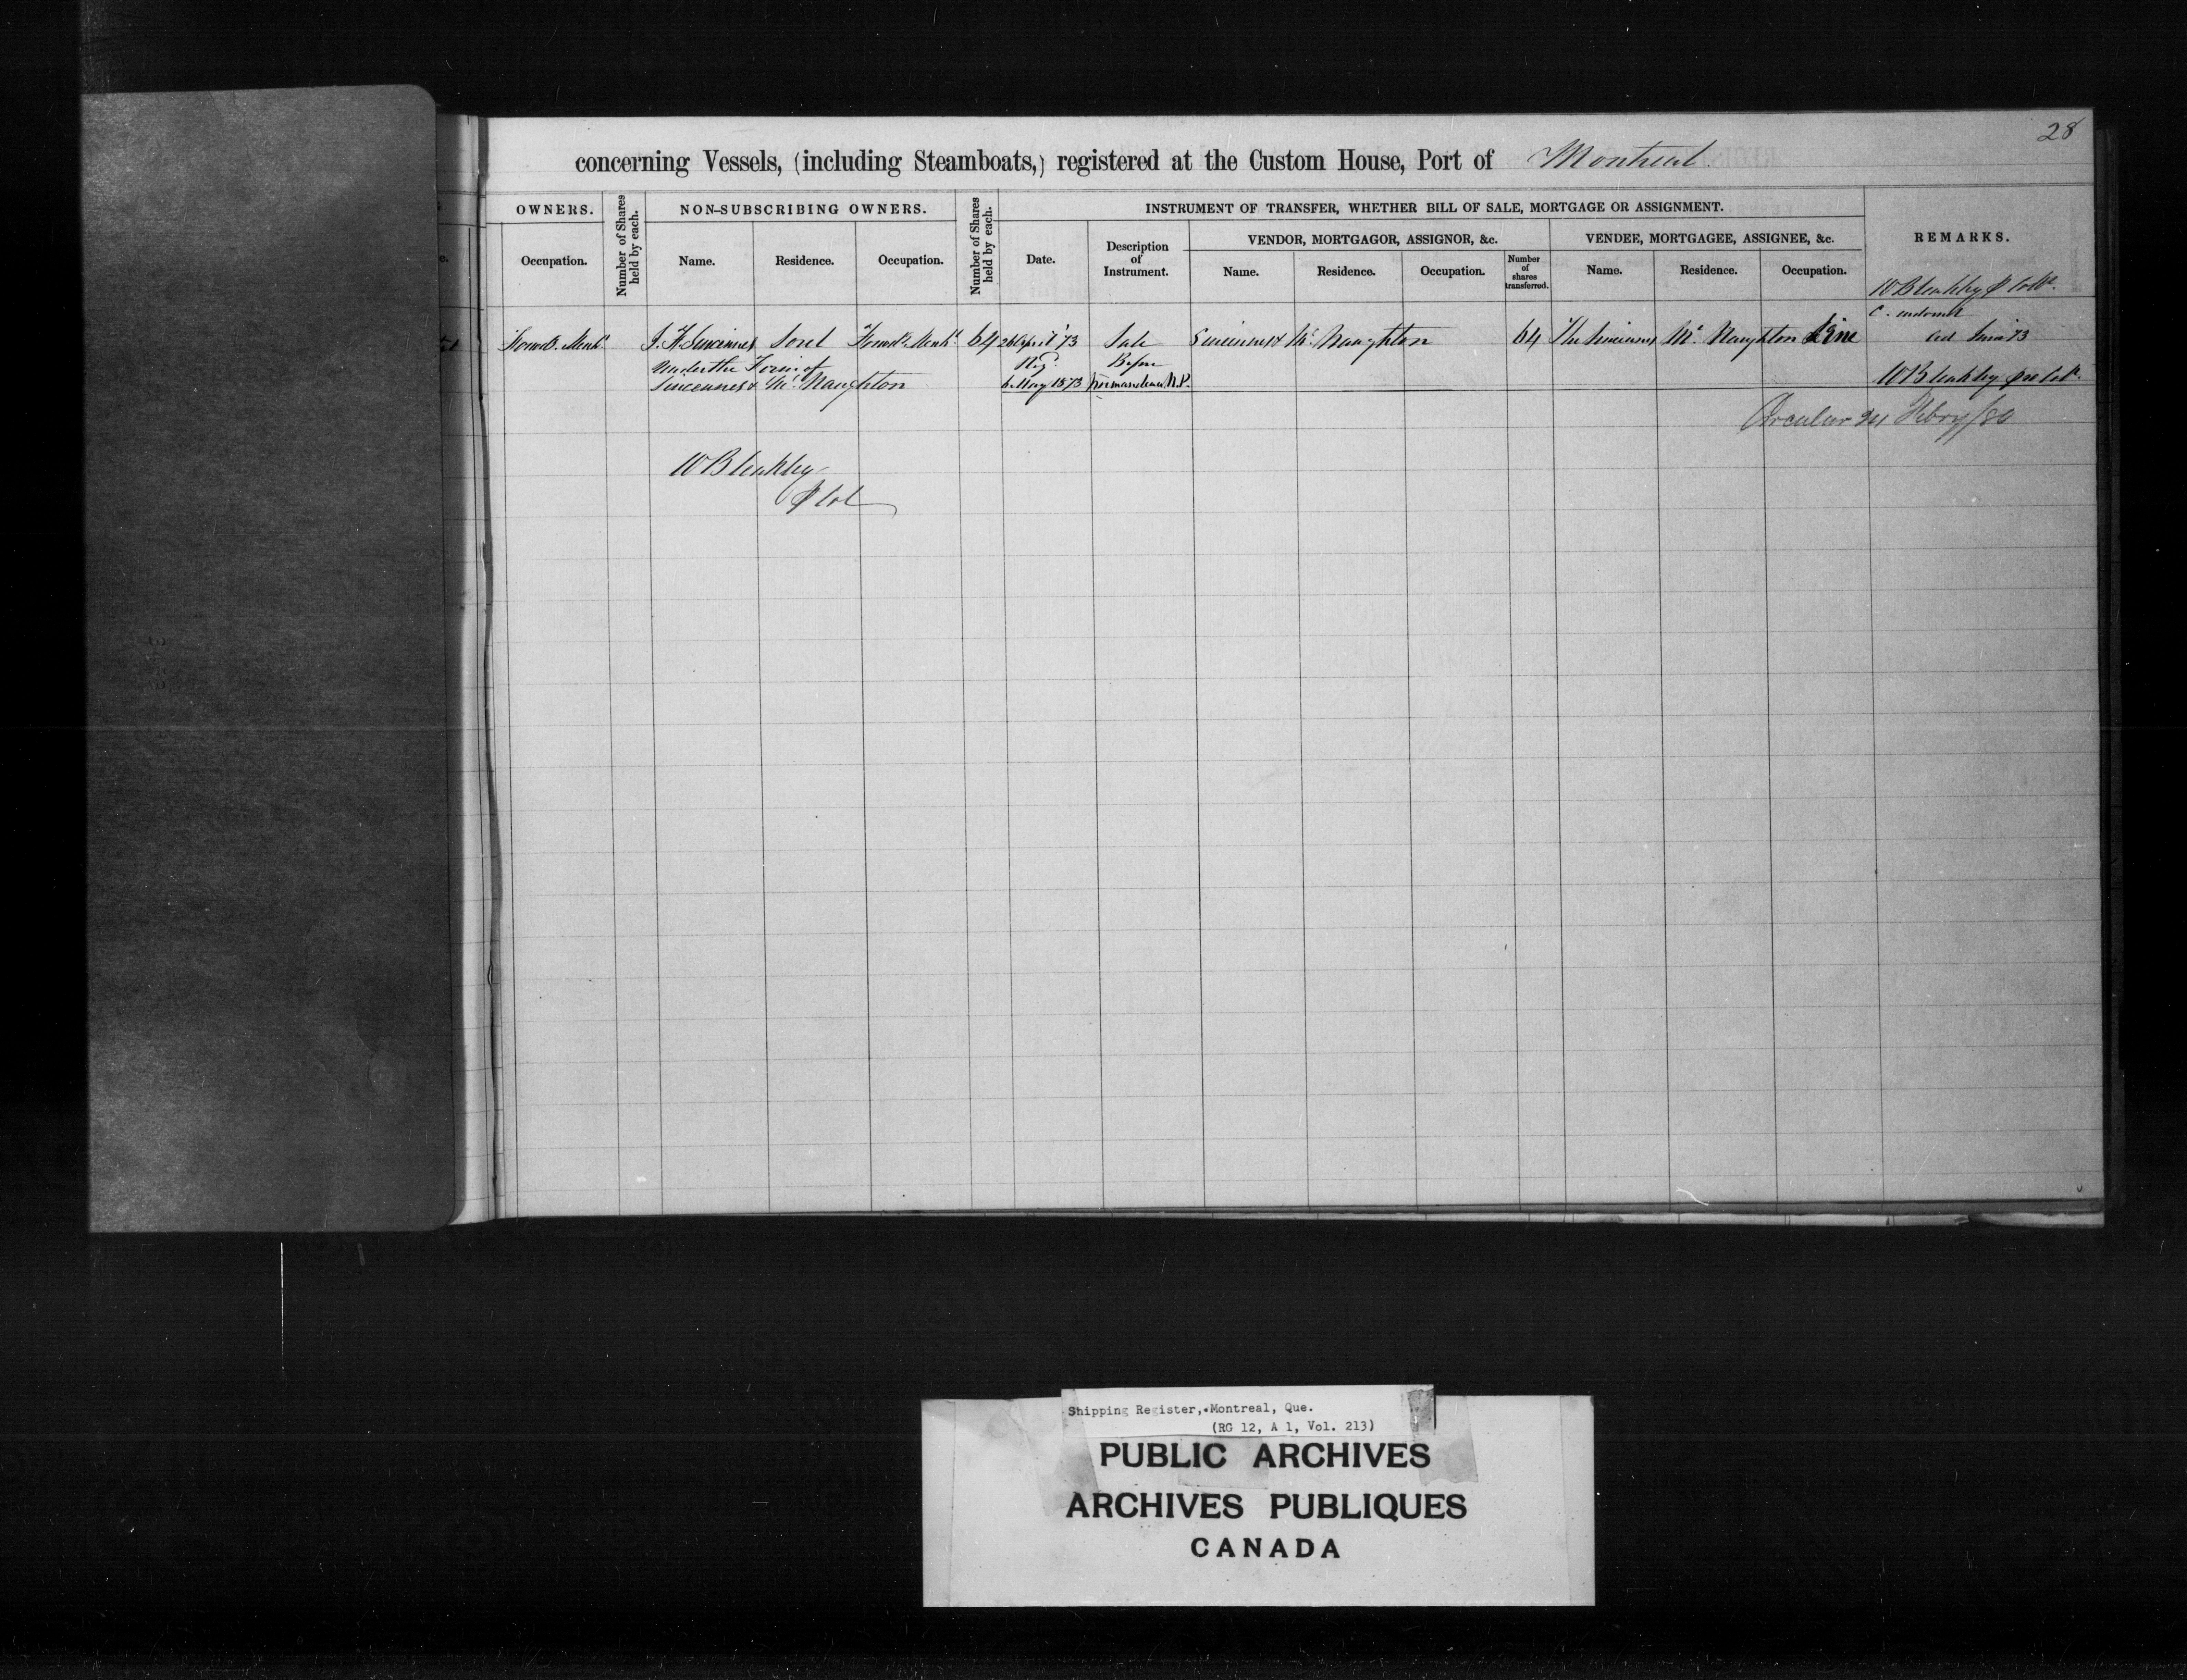 28
concerning Vessels, (including Steamboats,) registered at the Custom House, Port of Montreal
OWNERS.
Number of Shares held by each.
NON-SUBSCRIBING OWNERS.
Number of Shares held by each.
INSTRUMENT OF TRANSFER, WHETHER BILL OF SALE, MORTGAGE OR ASSIGNMENT.
REMARKS.
Occupation.
Name.
Residence.
Occupation.
Date.
Description of Instrument.
VENDOR, MORTGAGOR, ASSIGNOR, &c.
VENDEE, MORTGAGEE, ASSIGNEE, &c.
Name.
Residence.
Occupation.
Number of shares transferred.
Name.
Residence.
Occupation.
W Bleakley
Forwd. Mercht J. F. Sincennes Sorel Forwd. Mercht 64 26 April '73 Sale Sincennes & Mc Naughton 64 The Sincennes Mc Naughton Line
Under the Firm of Regd Before
Sincennes & Mc Naughton 6 May 1873 N.P. W Bleakley
Circular 24 Febry/80
W Bleakley
Shipping Register, Montreal, Que.
(RG 12, A 1, Vol. 213)
PUBLIC ARCHIVES
ARCHIVES PUBLIQUES
CANADA